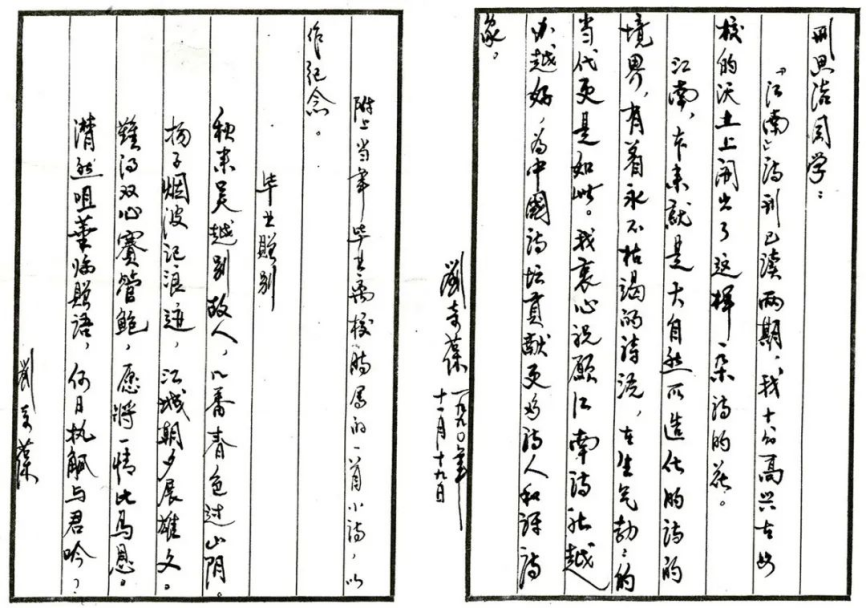 刑思洁同学：
《江南》诗刊已读两期，我十分高兴在母
校的沃土上开出了这样一朵诗的花。
江南，本来就是大自然所造化的诗的
境界，有着永不枯竭的诗流，在生气勃勃的
当代更是如此。我衷心祝愿江南诗社越
办越好，为中國诗坛贡献更多诗人和好诗
家。
劉奇葆 一九九〇年
十一月十九日
附上当年毕业离校时写的一首小诗，以
作纪念。
毕业赠别
秋来吴越别故人，几番春色过山阴。
扬子烟波记浪迹，江城朝夕展雄文。
难得双心赛管鲍，愿将一情比马恩。
潸然咀华临赠语，何日执觚与君吟？
劉奇葆